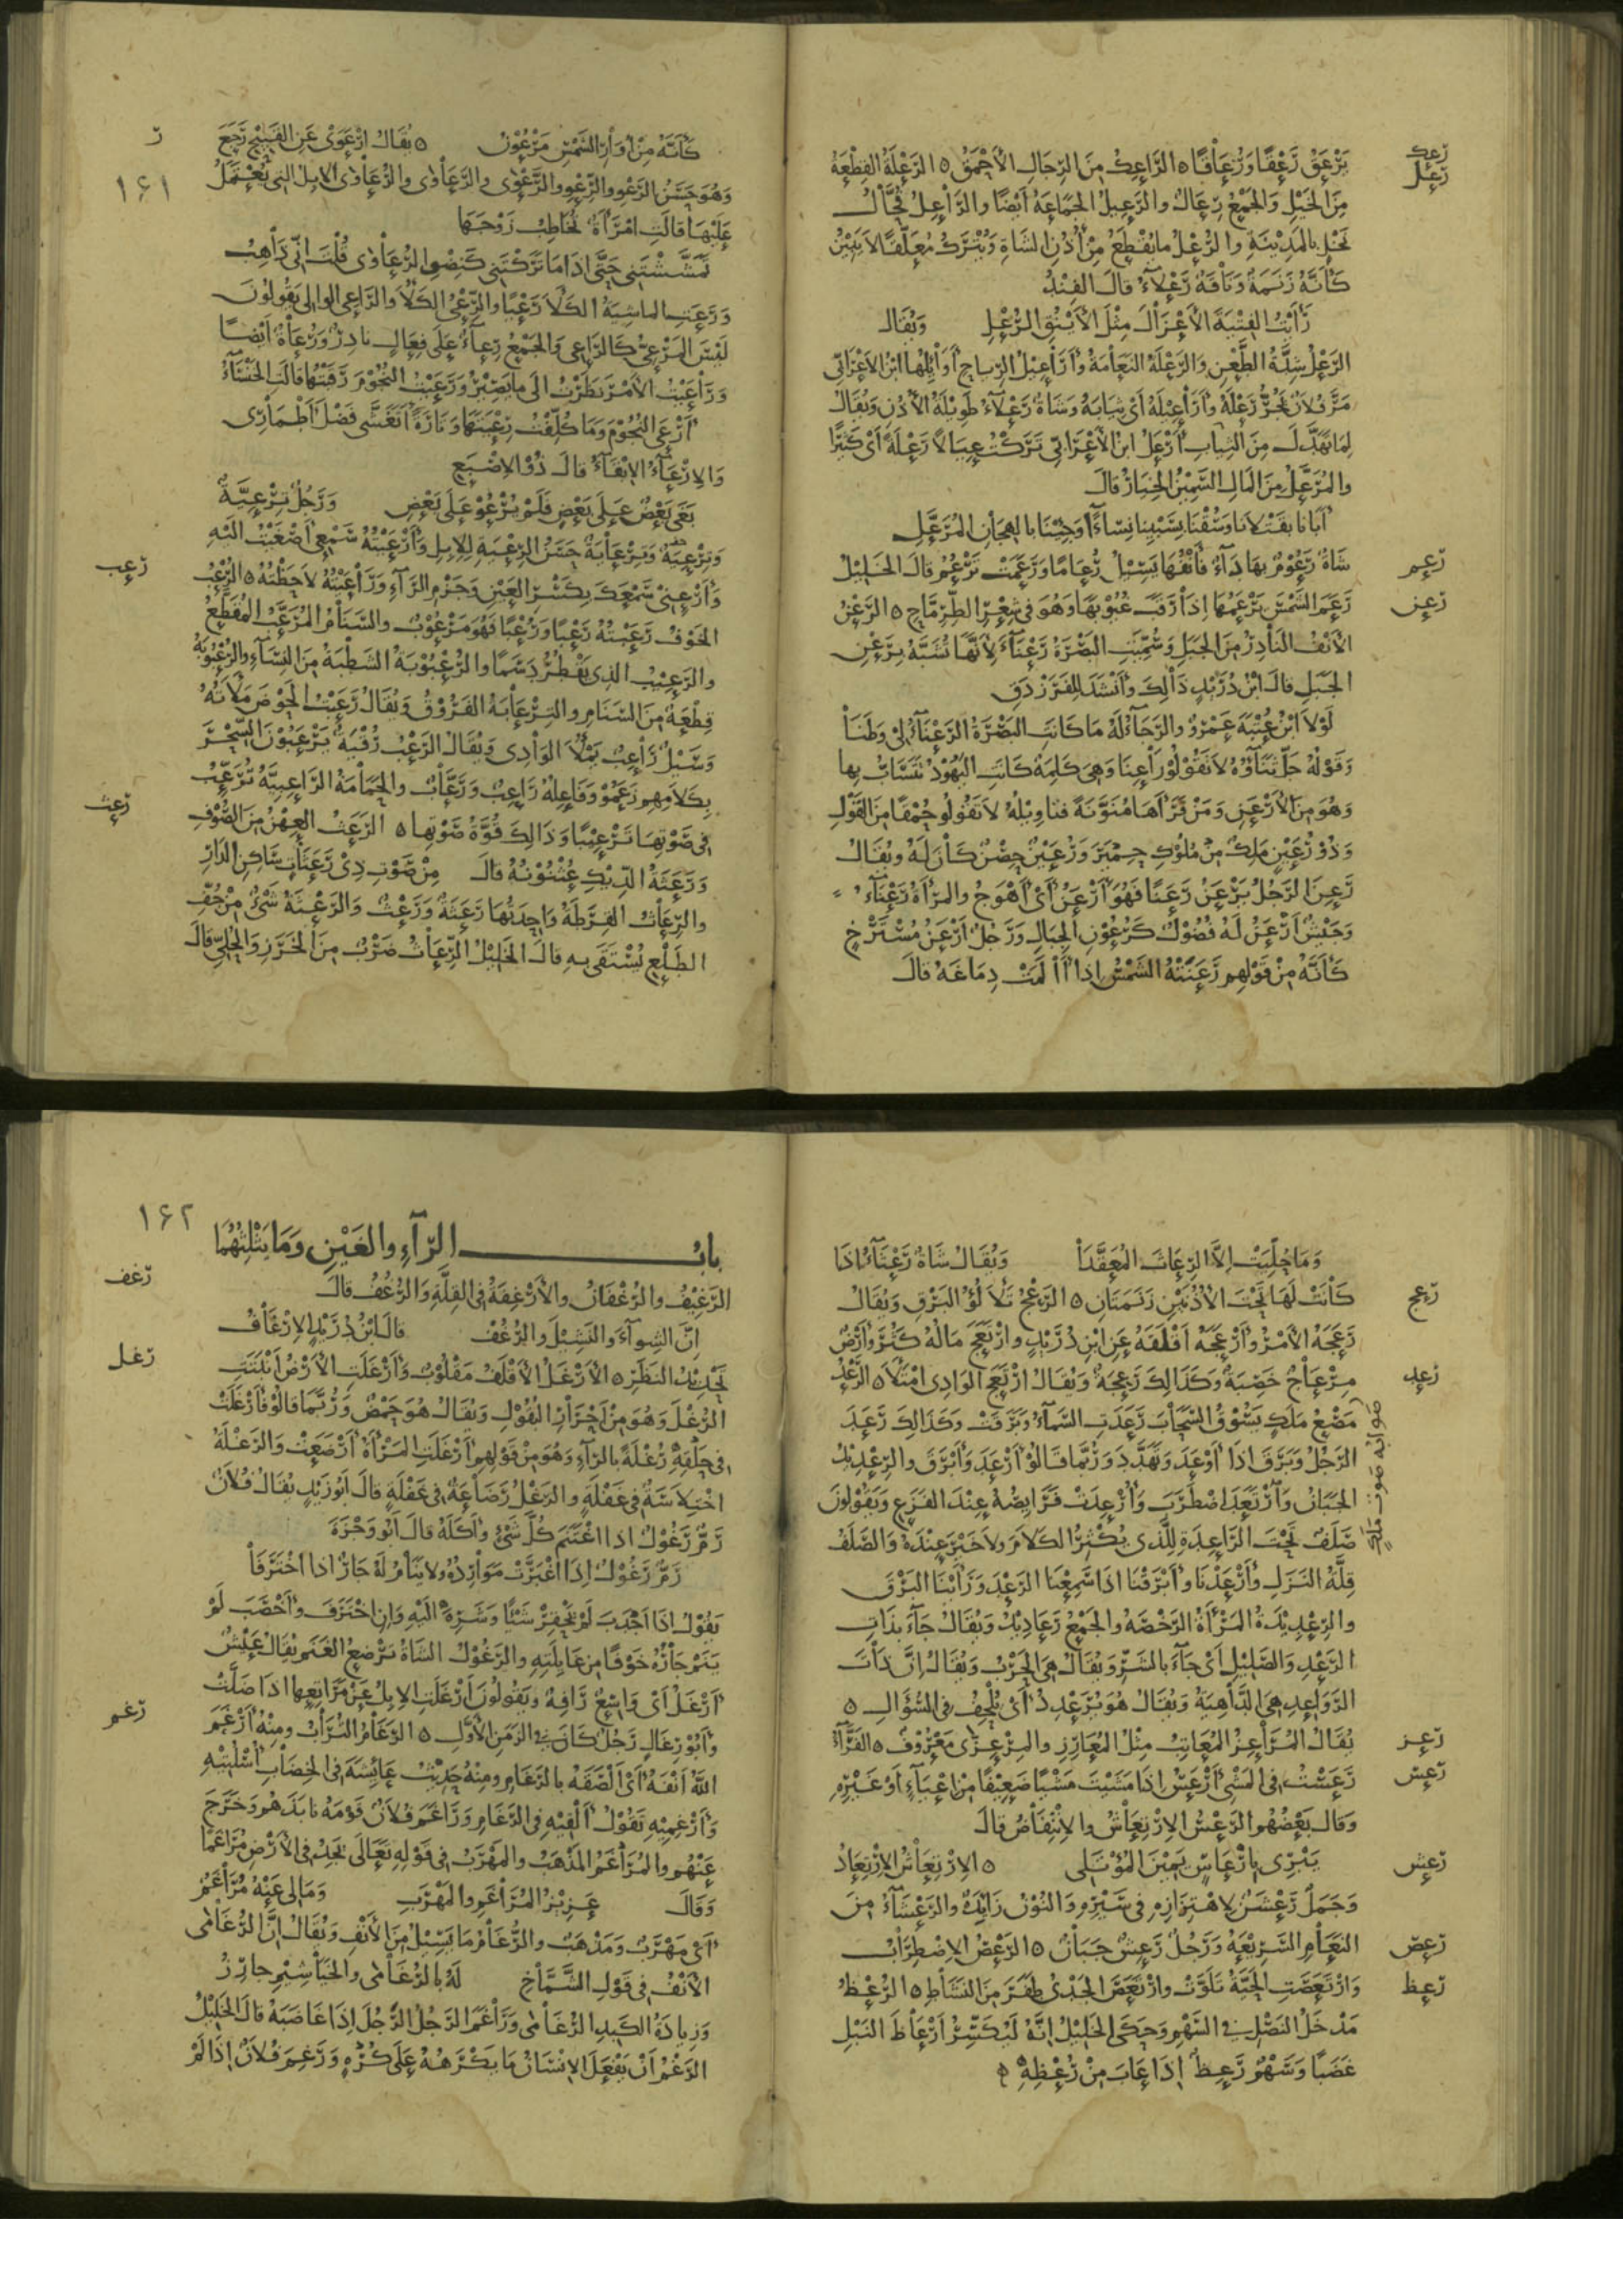 يَرْعَقُ رَعْقًا وَرُعَاقًا ٥ الرَّاعِكُ مِنَ الرِّجَالِ الأَحْمَقُ ٥ الرَّعْلَةُ القِطْعَةُ
رعك
رعل
مِنَ الخَيْلِ وَالجَمْعُ رِعَالٌ والرَّعِيلُ الجَمَاعَةُ أيْضًا والرَّاعِلُ فُحَّالُ
نَخْلٍ بالمَدِيْنَةِ والرَّعْلُ مايُقْطَعُ مِنْ أُذُنِ الشَاةِ وَيُتْرَكُ مُعَلَّقًا لاَ يَبِيْنُ
كَأَنَّهُ زَنَمَةٌ وَنَاقَةٌ رَعْلاَءُ قالَ الفِنْدُ
رَأَيْتُ الفِتْيَةَ الأَعْزَالَ مِثْلَ الأَيْنُقِ الرُّعْلِ وَيُقَالُ
الرَّعْلُ شِدَّةُ الطَّعْنِ والرَّعْلَةُ النَعَامَةُ وأَرَاعِيْلُ الرِّياحِ أَوَائِلُهَا ابْنُ الأَعْرَابِّى
مَرَّ فُلاَنٌ يَجُرُّ رَعْلَهُ وَأَرَاعِيْلَهُ أَىْ ثِيَابَهُ وَشَاةٌ رَعْلآءُ طَوِيْلَةُ الأُذُنِ وَيُقَالُ
لِمَا تَهَدَّلَ مِنَ الثِيَابِ أَرْعَلُ ابنُ الأَعْرَابّى تَرَكْتُ عِيَالاً رَعْلَةً أىْ كَثِيْرًا
والمُرَعَّلُ مِنَ المَالِ السَّمِيْنُ الخِيَارُ قالَ
أَبَأْنا بقَتْلاَنا وَسُقْنَا بِسَبْيِنا نِسَاءً وَجِئْنَا بالهِجَانِ المُرَعَّلِ
رعم
شَاةٌ رَعُوْمٌ بِهَا دَآءٌ فَأَنْفُهَا يَسِيْلُ رُعَامًا وَرَعَمَتْ تَرْعُمُ قالَ الخَلِيْلُ
رعن
رَعَمَ الشَّمْسَ يَرْعَمُهَا إذَا رَقَبَ غُيُوْبَهَا وَهُوَ فى شِعْرِ الطِّرِمَّاحِ ٥ الرَّعْنُ
الأَنْفُ النَادِرُ مِنَ الجَبَلِ وَسُمِّيَتِ البَصْرَةُ رَعْنَآءَ لأَنَّهَا تُشَبَّهُ بِرَعْنِ
الجَبَلِ قالَ ابْنُ دُرَيْدٍ ذَالِكَ وأَنْشَدَ لِلفَرَزْدَقِ
لَوْلاَ ابْنُ عُتْبَةَ عَمْرٌو والرَّجَآءُ لَهُ مَا كَانَتِ البَصْرَةُ الرَّعْنَآءُ لِىْ وَطَنَا
وَقَوْلُهُ جَلَّ ثَنَآؤُهُ لاَ تَقُوْلُوْا رَاعِنَا وَهِىَ كَلِمَةٌ كَانَتِ اليَهُوْدُ تَتَسَابُّ بِهَا
وَهُوَ مِنَ الأَرْعَنِ وَمَنْ قَرَأَهَا مُنَوَّنَةً فَتَاوِيْلُهُ لاَ تَقُولُو حُمْقًا مِنَ القَوْلِ
وَذُوْ رُعَيْنٍ مَلِكٌ مِنْ مُلُوْكِ حِمْيَرَ وَرُعَيْنٌ حِصْنٌ كَانَ لَهُ وَيُقَالُ
رَعِنَ الرَّجُلُ يَرْعَنُ رَعَنًا فَهُوَ أَرْعَنُ أَىْ أَهْوَجُ والمَرْأَةُ رَعْنَآءُ
وَجَيْشٌ أَرْعَنُ لَهُ فُضُوْلٌ كَرُعُوْنِ الجِبَالِ وَرَجُلٌ أَرْعَنُ مُسْتَرْخٍ
كَأَنَّهُ مِنْ قَوْلِهِم رَعَنَتْهُ الشَمْسُ إذا آلَمَتْ دِمَاغَهُ قالَ
كَأَنَّهُ مِنْ أُوَارِ الشَّمْسِ مَرْعُوْنُ ٥ يُقَالُ ارْعَوَىْ عَنِ القَبِيْحِ رَجَعَ
ر
١٦١
وَهُوَ حَسَنُ الرَّعْوِ والرِّعْوِ والرَّعْوَى والرَّعَاوَى والرُّعَاوَى الإبِلُ التِى يُعْتَمَلُ
عَلَيْهَا قالَتِ امْرَأةٌ تُخَاطِبُ زَوْجَهَا
تَمَشَّشْتَنِى حَتَّى إذَا مَا تَرَكْتَنِى كَنِضْوِ الرُّعَاوَى قُلْتَ إنِّى ذَاهِبُ
وَرَعَتِ الماشِيَةُ الكَلأَ رَعْيًا والرِّعْىُ الكَلأُ والرَّاعِى الوالِى يَقُولُونَ
لَيْسَ المَرْعِىُّ كَالرَّاعِى وَالجَمْعُ رِعآءٌ عَلَى فِعَالٍ نادِرٌ وَرُعَاةٌ أيْضًا
وَرَاعَيْتُ الأَمْرَ نَظَرْتُ إلَى ما يَصِيْرُ وَرَعَيْتُ النُّجُوْمَ رَقَبْتُهَا قالَتِ الخَنْسَآءُ
أَرْعَى النُجُوْمَ وَمَا كُلِّفْتُ رِعْيَتَهَا وَتَارَةً أَتَغَشَّى فَضْلَ أَطْمَارِى
وَالإرْعَآءُ الإبْقَآءُ قالَ ذُوْ الإصْبَعِ
بَغَى بَعْضٌ عَلَى بَعْضٍ فَلَمْ يُرْعُوْ عَلَى بَعْضِ وَرَجُلٌ تِرْعِيَّةٌ
وَتِرْعِيَةٌ وَتِرْعَايَةٌ حَسَنُ الرِّعْيَةِ لِلإبِلِ وَأَرْعَيْتُهُ سَمْعِى أَصْغَيْتُ إلَيْهِ
رعب
وَأَرْعِنِىْ سَمْعَكَ بِكَسْرِ العَيْنِ وَجَزْمِ الرَّآءِ وَرَاعَيْتُهُ لاَحَظْتُهُ ٥ الرُّعْبُ
الخَوْفُ رَعَبْتُهُ رَعْبًا وَرُعْبًا فَهُوَ مَرْعُوْبٌ والسَّنَامُ المُرَعَّبُ المُقَطَّعُ
والرَّعِيْبُ الذِى يَقْطُرُ دَسَمًا والرُّعْبُوْبَةُ الشَطْبَةُ مِنَ النِسَآءِ والرُّعْبُوْبَةُ
قِطْعَةٌ مِنَ السَّنَامِ والتِرْعَابَةُ الفَرُوْقُ وَيُقَالُ رَعَبْتُ الحَوْضَ مَلأَتُهُ
وَسَيْلٌ رَاعِبٌ يَمْلأُ الوَادِى وَيُقَالُ الرَّعْبُ رُقْيَةٌ يَرْعَبُوْنَ السِّحْرَ
بِكَلاَمِهِم زَعَمُوْ وَفَاعِلُهُ رَاعِبٌ وَرَعَّابٌ والحَمَامَةُ الرَّاعِبِيَّةُ تُرَعِّبُ
رعث
فِى صَوْتِهَا تَرْعِيْبًا وَذَالِكَ قُوَّةُ صَوْتِهَا ٥ الرَّعَثُ العِهْنُ مِنَ الصُّوْفِ
وَرَعَثَةُ الدِّيْكِ عُثْنُوْنُهُ قالَ مِنْ صَوْتِ ذِىْ رَعَثَاتٍ سَاكِنِ الدَّارِ
والرِّعَاثُ القِرَطَةُ وَاحِدَتُهَا رَعْثَةٌ وَرَعْثٌ وَالرَّعْثَةُ شَىْءٌ مِنْ جُفِّ
الطَّلْعِ يُسْتَقَى بِهِ قالَ الخَلِيْلُ الرِّعَاثُ ضَرْبٌ مِنَ الخَرَزِ وَالحُلِىِّ قالَ
وَمَا حُلِّيَتْ إلاَّ الرِّعَاثَ المُعَقَّدَا وَيُقَالُ شَاةٌ رَعْثَآءُ إذَا
رعج
كَانَتْ لَهَا تَحْتَ الأُذُنَيْنِ زَنَمَتَانِ ٥ الرَّعْجُ تَلأْلُؤُ البَرْقِ وَيُقَالُ
رَعَجَهُ الأَمْرُ وأَرْعَجَهُ أَقْلَقَهُ عَنِ ابْنِ دُرَيْدٍ وارْتَعَجَ مَالُهُ كَثُرَ وأَرْضٌ
رعد
مِرْعَاجٌ خَصِبَةٌ وَكَذَالِكَ رَعِجَةٌ وَيُقَالُ ارْتَعَجَ الوَادِى امْتَلأَ ٥ الرَّعْدُ
مَصْعُ مَلَكٍ يَسُوْقُ السَّحَابَ رَعَدَتِ السَّمآءُ وَبَرَقَتْ وَكَذَالِكَ رَعَدَ
صوابه صوت ملك
الرَجُلُ وَبَرَقَ إذَا أَوْعَدَ وَتَهَدَّدَ وَرُبَّمَا قَالُوْ أَرْعَدَ وَأَبْرَقَ والرِّعْدِيْدُ
الجَبَانُ وَارْتَعَدَ اضْطَرَبَ وَأُرْعِدَتْ فَرَايِصُهُ عِنْدَ الفَزَعِ وَيَقُوْلُونَ
صَلَفٌ تَحْتَ الرَّاعِدَةِ لِلَّذِى يُكْثِرُ الكَلاَمَ وَلاَ خَيْرَ عِنْدَهُ وَالصَّلَفُ
قِلَّةُ النَزَلِ وأَرْعَدْنَا وأَبْرَقْنَا إذَا سَمِعْنَا الرَعْدَ وَرَأَيْنَا البَرْقَ
والرِعْدِيْدَةُ المَرْأَةُ الرَّخْصَةُ والجَمْعُ رَعَادِيْدُ وَيُقَالُ جَآءَ بِذَاتِ
الرَّعْدِ والصَّلِيْلِ أَىْ جَآءَ بالشَّرِّ وَيُقَالُ هِىَ الحَرْبُ وَيُقَالُ إنَّ ذَاتَ
الرَّوَاعِدِ هِىَ الدَّاهِيَةُ وَيُقَالُ هُوَ يُرَعْدِدُ أَىْ يُلْحِفُ فى السُّؤَالِ ٥
رعز
يُقَالُ المُرَاعِزُ المُعَاتِبُ مِثْلُ المُعَارِزِ والمِرْعِزَّى مَعْرُوْفٌ ٥ الفَرَّآءُ
رعس
رَعَسْتُ فى المَشْىِ أَرْعَسُ إذَا مَشَيْتَ مَشْيًا ضَعِيْفًا مِنْ إعْيَآءٍ أَوْ غَيْرِهِ
وَقالَ بَعْضُهُم الرَّعْسُ الإرْتِعَاشُ والإنْتِفَاضُ قالَ
رعش
يَبْرِى بإرْعَاسِ يَمِيْنِ المُؤْتَلِى ٥ الإرْتِعَاشُ الإرْتِعَادُ
وَجَمَلٌ رَعْشَنٌ لإهْتِزَازِهِ فى سَيْرِهِ وَالنُوْنُ زَايِدَةٌ والرَعْشَآءُ مِنَ
رعص
النَعَامِ السَّرِيْعَةُ وَرَجُلٌ رَعِشٌ جَبَانٌ ٥ الرَعْصُ الإضْطِرَابُ
رعظ
وَارْتَعَصَتِ الحَيَّةُ تَلَوَّتْ وارْتَعَصَ الجَدْىُ طَفَرَ مِنَ النَشَاطِ ٥ الرُّعْظُ
مَدْخَلُ النَصْلِ فى السَّهْمِ وَحَكَى الخَلِيْلُ إنَّهُ لَيُكَسِّرُ أَرْعَاظَ النَبْلِ
غَضَبًا وَسَهْمٌ رَعِظٌ إذَا غَابَ مِنْ رُعْظِهِ ٥
١٦٢
بابُ الرَّآءِ والغَيْنِ وَمَا يَثْلِثُهُمَا
رغف
الرَّغِيْفُ والرُغْفَانُ والأَرْغِفَةُ فِى القِلَّةِ وَالرُّغُفُ قالَ
إنَّ الشِوآءَ والنَشِيْلَ والرُّغُفْ قالَ ابْنُ دُرَيْدٍ الإرْغَافُ
رغل
تَحْدِيْدُ النَظَرِ ٥ الأَرْغَلُ الأَقْلَفُ مَقْلُوْبٌ وَأَرْغَلَتِ الأَرْضُ أَنْبَتَتِ
الرُغْلَ وَهُوَ مِنْ أَحْرَارِ البُقُوْلِ وَيُقَالُ هُوَ حَمْضٌ وَرُبَّمَا قالُوْ أَرْغَلَتْ
فى رُغْلَةً بالرَّآءِ وَهُوَ مِنْ قَوْلِهِم أَرْغَلَتِ المَرْأَةُ أَرْضَعَتْ وَالرَغْلَةُ
اخْتِلاَسَةٌ فى غَفْلَةٍ والرَغْلُ رَضَاعَةٌ فى غَفْلَةٍ قالَ أَبُو زَيْدٍ يُقَالُ فُلاَنٌ
رَمٌّ رَغُوْلٌ إذا اغْتَنَمَ كُلَّ شَىْءٍ وأَكَلَهُ قالَ أَبُو وَجْزَةَ
رَمٌّ رَغُوْلٌ إذَا اغْبَرَّتْ مَوَارِدُهُ وَلاَ يَنَامُ لَهُ جَارٌ إذا اخْتَرَفَا
يَقُوْلُ إذَا أَجْدَبَ لَمْ يَحْقِرْ شَيْئًا وَشَرِهَ إلَيْهِ وَإنِ اخْتَرَفَ وأَخْصَبَ لَمْ
يَنَمْ جَارُهُ خَوْفًا مِنْ غَايِلَتِهِ والرَّغُوْلُ الشَاةُ تَرْضَعُ الغَنَمَ يُقَالُ عَيْشٌ
رغم
أَرْغَلُ أَىْ وَاسِعٌ رَافِهٌ وَيَقُولُونَ أَرْغَلَتِ الإبِلُ عَنْ مَرَاتِعِهَا إذا ضَلَّتْ
وَأَبُوْ رِغَالٍ رَجُلٌ كَانَ فى الزَمَنِ الأَوَّلِ ٥ الرَّغَامُ التُرَابُ وَمِنْهُ أَرْغَمَ
اللهُ أَنْفَهُ أَىْ أَلْصَقَهُ بالرَّغَامِ وَمِنْهُ حَدِيْثُ عَائِشَةَ فى الخِضَابِ اسْلُتِيْهِ
وأَرْغِمِيْهِ تَقُوْلُ أَلْقِيْهِ فى الرَّغَامِ وَرَاغَمَ فُلاَنٌ قَوْمَهُ نابَذَهُم وَخَرَجَ
عَنْهُم والمُرَاغَمُ المَذْهَبُ والمَهْرَبُ فى قَوْلِهِ تَعَالَى يَجِدْ فى الأَرْضِ مُرَاغَمًا
وَقالَ عَزِيْزُ المُرَاغَمِ والمَهْرَبِ وَمَا لِى عَنْهُ مُرَاغَمٌ
أَىْ مَهْرَبٌ وَمَذْهَبٌ والرُّغَامُ مَا يَسِيْلُ مِنَ الأَنْفِ وَيُقَالُ إنَّ الرُّغَامَى
الأَنْفُ فى قَوْلِ الشَّمَّاخِ لَهُ بالرُّغَامَى والخَيَاشِيْمِ جارِزُ
وَزِيادَةُ الكَبِدِ الرُّغَامَى وَرَاغَمَ الرَّجُلُ الرَّجُلَ إذَا غَاضَبَهُ قالَ الخَلِيْلُ
الرَّغْمُ أَنْ يَفْعَلَ الإنْسَانُ مَا يَكْرَهُهُ عَلَى كُرْهٍ وَرَغِمَ فُلاَنٌ إذَا لَمْ